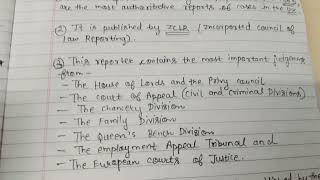 are the most authoritative reports of cases in the UK.
② It is published by ICLR (Incorported council of
Law Reporting).
③ This reporter contains the most important judgments
from-
- The House of Lords and the Privy council
- The court of Appeal (Civil and Criminal Divisions)
- The Chancery Division
- The Family Division
- The Queen's Bench Division
- The employment Appeal Tribunal and
- The European courts of Justice.
by the